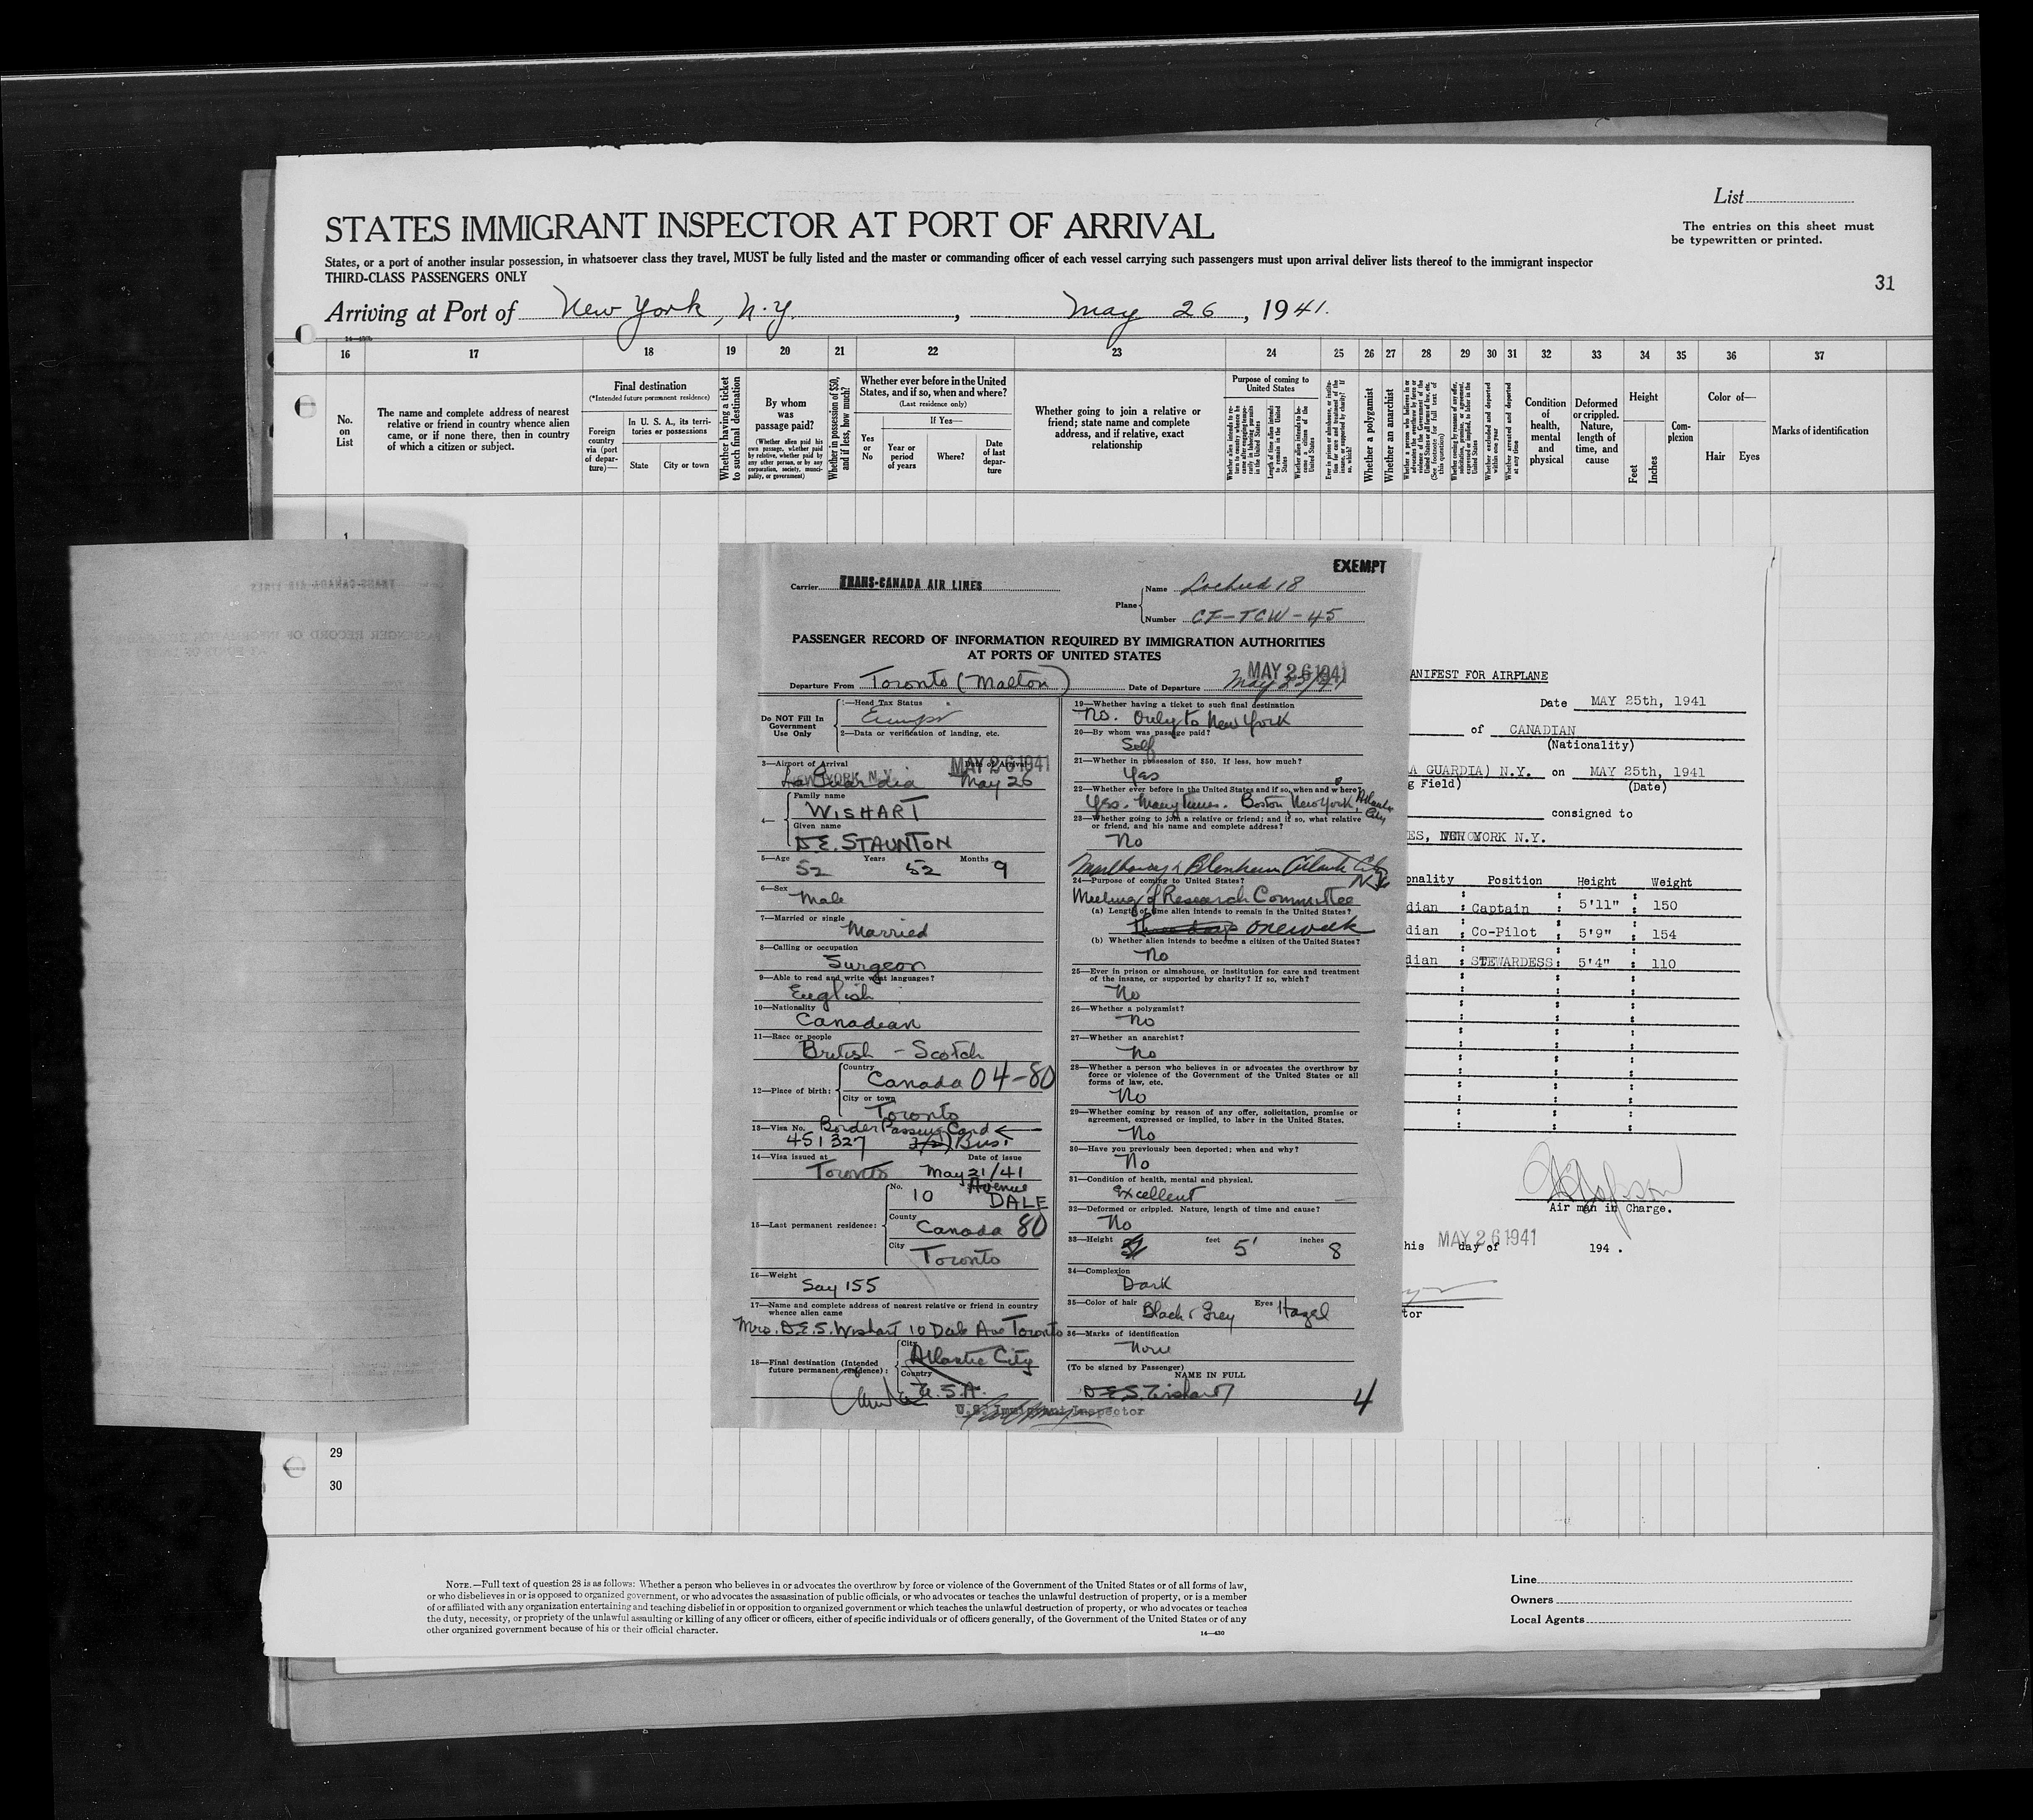 List
STATES IMMIGRANT INSPECTOR AT PORT OF ARRIVAL
The entries on this sheet must
be typewritten or printed.
States, or a port of another insular possession, in whatsoever class they travel, MUST be fully listed and the master or commanding officer of each vessel carrying such passengers must upon arrival deliver lists thereof to the immigrant inspector
THIRD-CLASS PASSENGERS ONLY
31
Arriving at Port of New York, N.Y., May 26, 1941.
16 17 18 19 20 21 22 23 24 25 26 27 28 29 30 31 32 33 34 35 36 37
No. on List
The name and complete address of nearest
relative or friend in country whence alien
came, or if none there, then in country
of which a citizen or subject.
Final destination
(*Intended future permanent residence)
Foreign country via (port of departure)—
In U. S. A., its territories or possessions
State
City or town
Whether having a ticket to such final destination
By whom was passage paid?
(Whether alien paid his own passage, whether paid by relative, whether paid by any other person, or by any corporation, society, municipality, or government)
Whether in possession of $50, and if less, how much?
Whether ever before in the United States, and if so, when and where?
(Last residence only)
Yes or No
If Yes—
Year or period of years
Where?
Date of last departure
Whether going to join a relative or
friend; state name and complete
address, and if relative, exact
relationship
Purpose of coming to United States
Whether a polygamist
Whether an anarchist
Condition of health, mental and physical
Deformed or crippled. Nature, length of time, and cause
Height
Feet
Inches
Complexion
Color of—
Hair
Eyes
Marks of identification
1
EXEMPT
Carrier TRANS-CANADA AIR LINES
Plane
Name Lockheed 18
Number CF-TCW-45
PASSENGER RECORD OF INFORMATION REQUIRED BY IMMIGRATION AUTHORITIES
AT PORTS OF UNITED STATES
MAY 26 1941
Departure From Toronto (Malton) Date of Departure
Do NOT Fill In
Government
Use Only
1—Head Tax Status
Exempt
2—Data or verification of landing, etc.
3—Airport of Arrival Date of Arrival
MAY 26 1941
NEW YORK N.Y.
La Guardia May 26
4—
Family name
WISHART
Given name
D.E. STAUNTON
5—Age Years Months
52 52 9
6—Sex
Male
7—Married or single
Married
8—Calling or occupation
Surgeon
9—Able to read and write what languages?
English
10—Nationality
Canadian
11—Race or people
British - Scotch
12—Place of birth:
Country
Canada 04-80
City or town
Toronto
13—Visa No. Border Passing Card
451327 Bus.
14—Visa issued at Date of issue
Toronto May 21/41
15—Last permanent residence:
No. Avenue
10 DALE
County
Canada 80
City
Toronto
16—Weight
Say 155
17—Name and complete address of nearest relative or friend in country
whence alien came
Mrs. D.E.S. Wishart 10 Dale Ave Toronto
18—Final destination (Intended
future permanent residence):
City
Atlantic City
Country
U.S.A.
U.S. Immigrant Inspector
19—Whether having a ticket to such final destination
No. Only to New York
20—By whom was passage paid?
Self
21—Whether in possession of $50. If less, how much?
Yes
22—Whether ever before in the United States and if so, when and where?
Yes. Many times. Boston, New York, Atlantic City
23—Whether going to join a relative or friend; and if so, what relative
or friend, and his name and complete address?
No
Marlborough Blenheim Atlantic City
N.J.
24—Purpose of coming to United States?
Meeting of Research Committee
(a) Length of time alien intends to remain in the United States?
Three days one week
(b) Whether alien intends to become a citizen of the United States?
No
25—Ever in prison or almshouse, or institution for care and treatment
of the insane, or supported by charity? If so, which?
No
26—Whether a polygamist?
No
27—Whether an anarchist?
No
28—Whether a person who believes in or advocates the overthrow by
force or violence of the Government of the United States or all
forms of law, etc.
No
29—Whether coming by reason of any offer, solicitation, promise or
agreement, expressed or implied, to labor in the United States.
No
30—Have you previously been deported; when and why?
No
31—Condition of health, mental and physical.
Excellent
32—Deformed or crippled. Nature, length of time and cause?
No
33—Height feet 5' inches 8
34—Complexion
Dark
35—Color of hair Black & Grey Eyes Hazel
36—Marks of identification
None
(To be signed by Passenger)
NAME IN FULL
D.E.S. Wishart
4
ANIFEST FOR AIRPLANE
Date MAY 25th, 1941
of CANADIAN
(Nationality)
A GUARDIA) N.Y. on MAY 25th, 1941
g Field) (Date)
consigned to
ES, NEW YORK N.Y.
onality Position Height Weight
dian : Captain : 5'11" : 150
dian : Co-Pilot : 5'9" : 154
dian : STEWARDESS: 5'4" : 110
Air man in Charge.
his MAY 26 1941 day of 194 .
tor
29
30
NOTE.—Full text of question 28 is as follows: Whether a person who believes in or advocates the overthrow by force or violence of the Government of the United States or of all forms of law,
or who disbelieves in or is opposed to organized government, or who advocates the assassination of public officials, or who advocates or teaches the unlawful destruction of property, or is a member
of or affiliated with any organization entertaining and teaching disbelief in or opposition to organized government or which teaches the unlawful destruction of property, or who advocates or teaches
the duty, necessity, or propriety of the unlawful assaulting or killing of any officer or officers, either of specific individuals or of officers generally, of the Government of the United States or of any
other organized government because of his or their official character.
14—430
Line
Owners
Local Agents